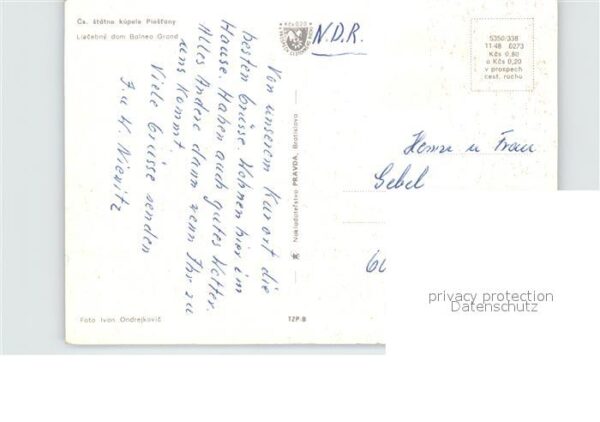 Čs. štátne kúpele Piešťany
Liečebný dom Balnea Grand
Kčs 0,20
N.D.R.
5350/338
11-48 0273
Kčs 0,80
a Kčs 0,20
v prospech
cest. ruchu
Von unserem Kurort die
besten Grüsse. Wohnen hier im
Hause. Haben auch gutes Wetter.
Alles Andere dann wenn Ihr zu
uns kommt.
Viele Grüsse senden
J. u W.
Nakladateľstvo PRAVDA, Bratislava
Herrn u Frau
Gebel
60
privacy protection
Datenschutz
Foto Ivan Ondrejkovič
TZP-B